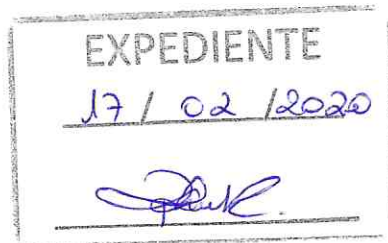 EXPEDIENTE
17 / 02 / 2020